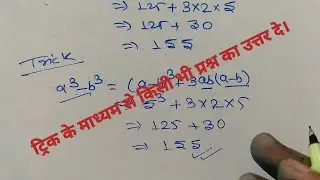 ⇒ 5³ + 3×2×5
⇒ 125 + 30
⇒ 155
Trick
a³-b³ = (a-b)³+3ab(a-b)
⇒ 5³ + 3×2×5
⇒ 125 + 30
⇒ 155
ट्रिक के माध्यम से किसी भी प्रश्न का उत्तर दे।